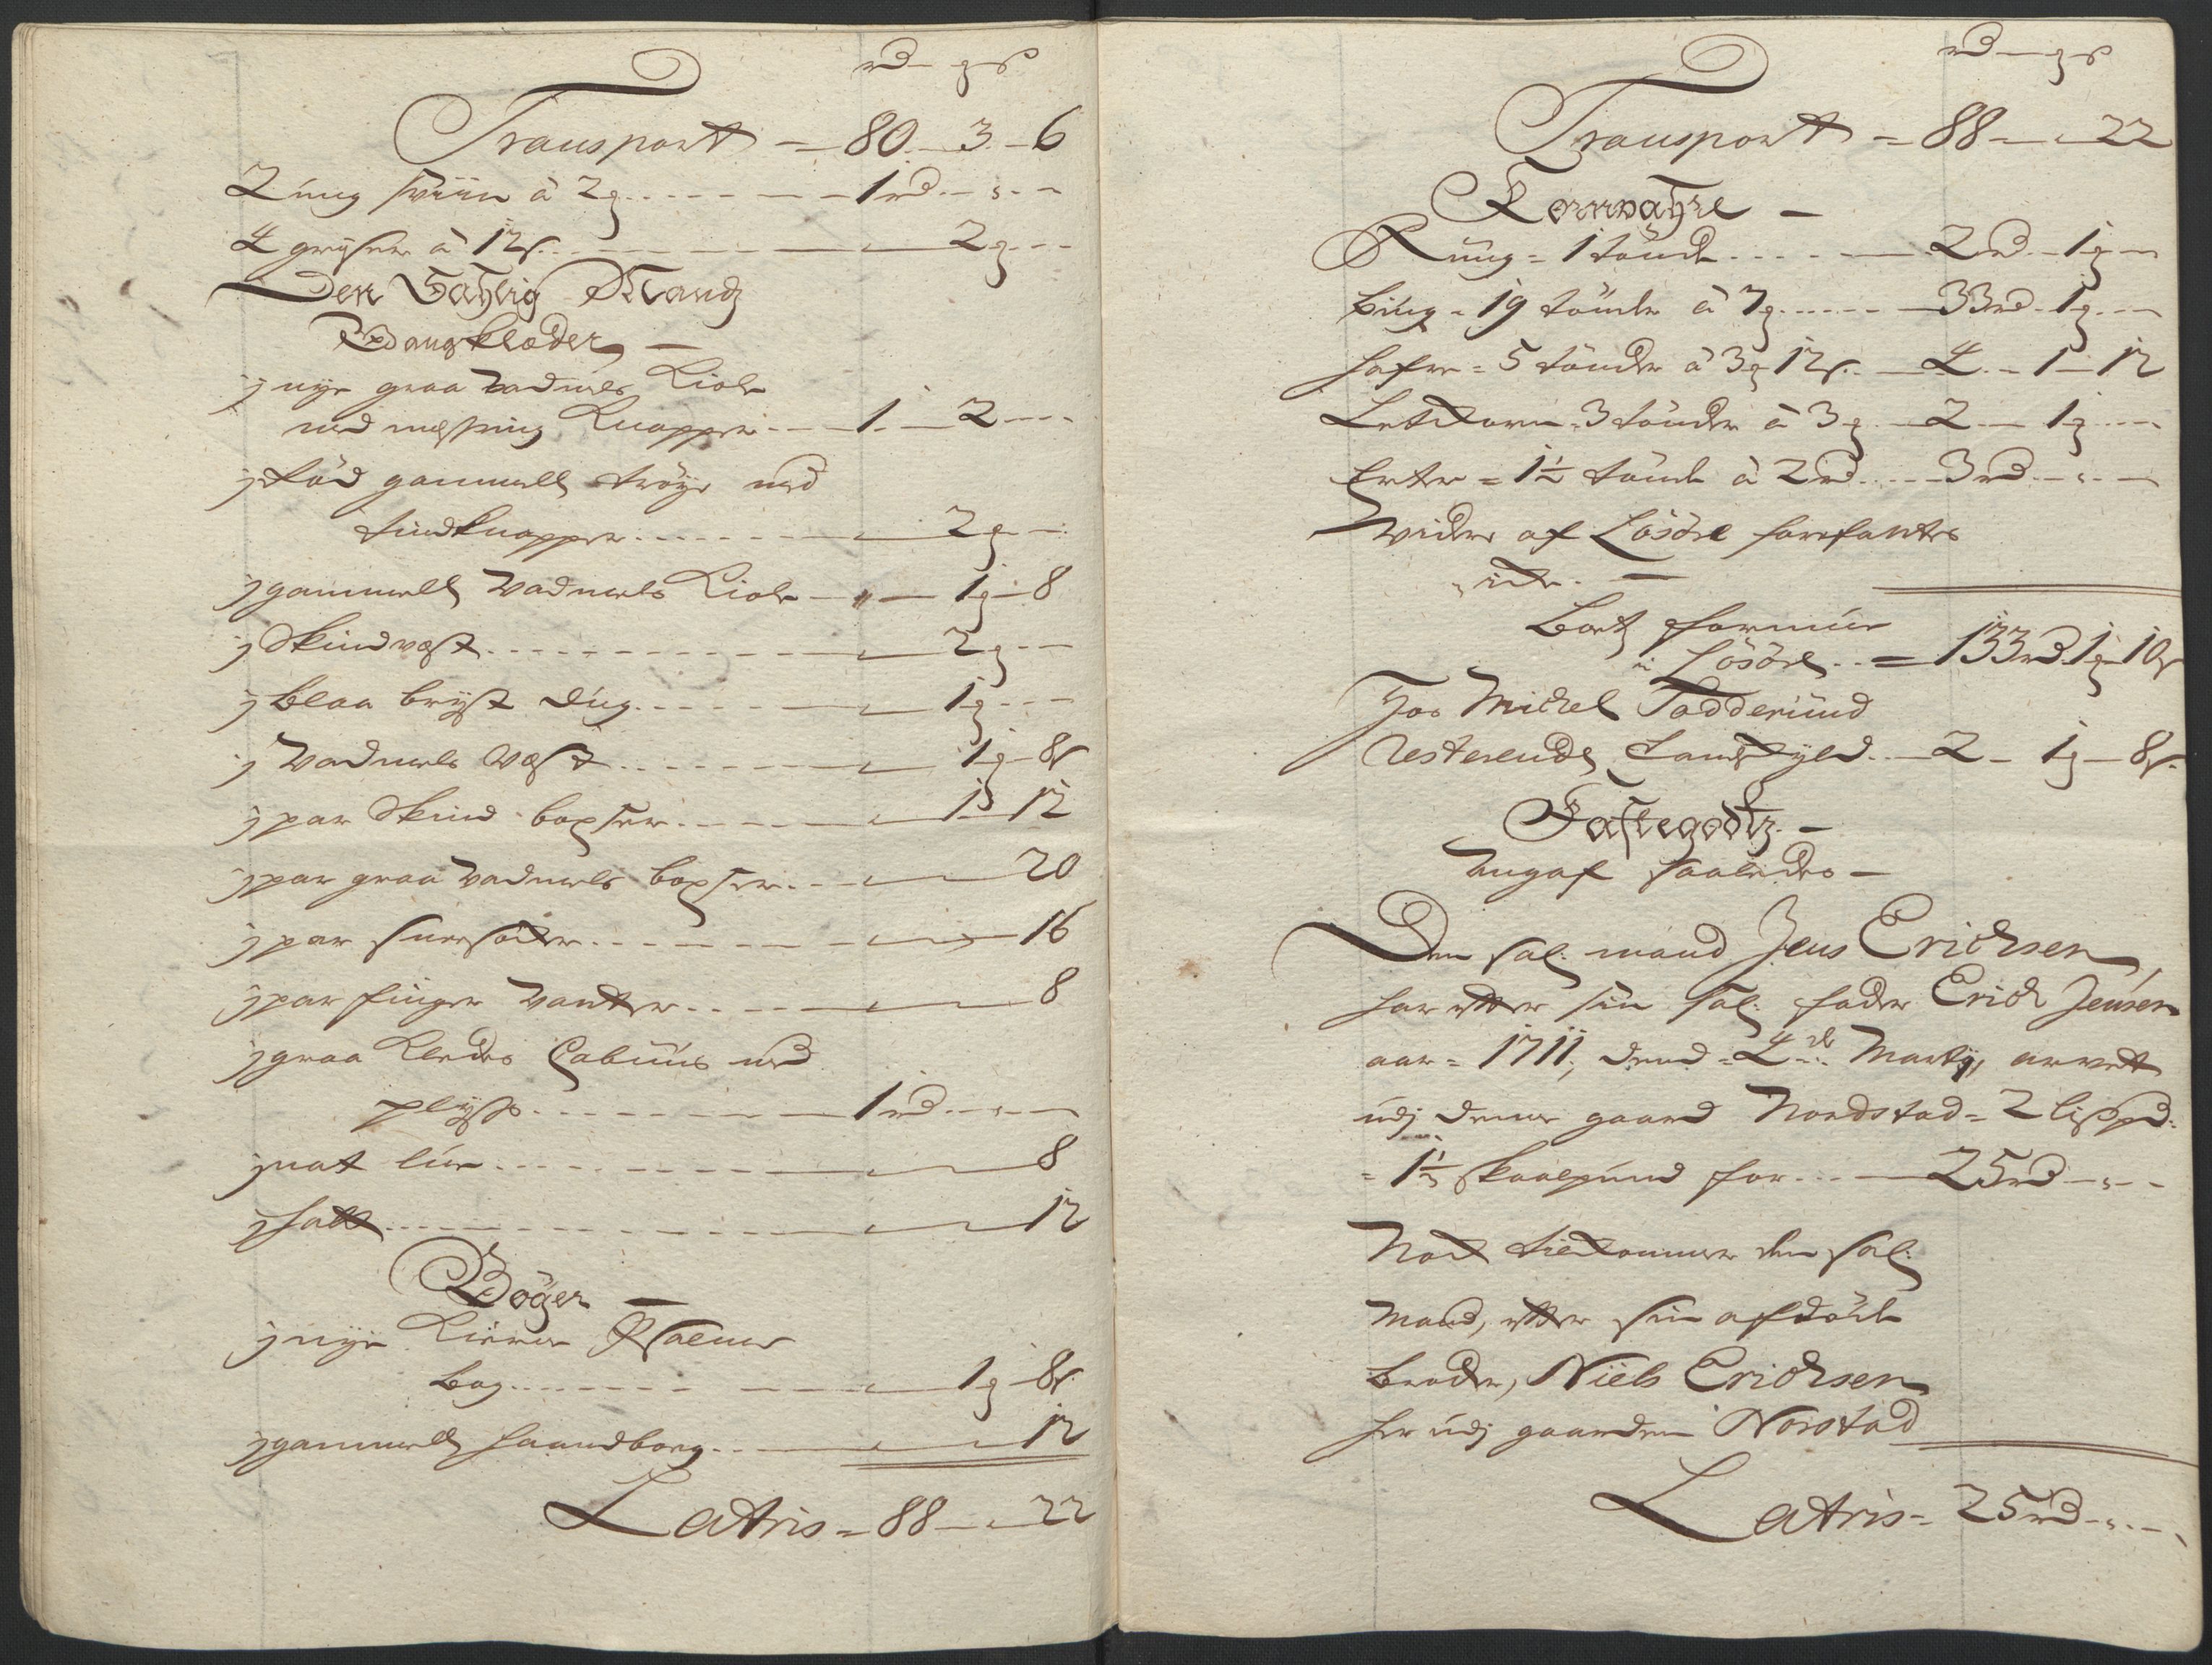 rd - ꝫ ß
Transport - 80 - 3 - 6
2 ung sviin à 2ꝫ - 1 rd - -
4 grijser à 12 ß - 2ꝫ -
Den Sahlig Mands
Gangklæder -
j nye graa Vadmels Kiole
med messing Knapper - 1 - 2 -
j röd gammell tröye med
tindknapper - 2ꝫ -
j gammell Vadmels Kiole - " - 1ꝫ - 8
j Skindvest - 2ꝫ -
j blaa bryst dug - 1ꝫ -
j Vadmels Vest - 1ꝫ - 8ß
j par Skind boxser - 1 - 12
j par graa Vadmels boxser - 20
j par snesocker - 16
j par finger Vanter - 8
j graa Kledes Cabuus med
plyss - 1 rd - -
j nat lue - 8
j hatt - 12
Böger -
j nye Kircke Psalme
bog - 1ꝫ - 8ß
j gammell haandbog - 12
Latris = 88 - - 22
rd - ꝫ ß
Transport - 88 - - 22
Kornvahre -
Rüug = 1 tönde - 2 rd - 1ꝫ -
biug = 19 tönder à 7ꝫ - 33 rd - 1ꝫ -
hafre = 5 tönder à 3ꝫ 12ß - 4 - 1 - 12
Letkorn 3 tönder à 3ꝫ - 2 - 1ꝫ -
Erter = 1½ tönde à 2 rd - 3 rd - -
Widere af Lösöre forefantes
icke. -
Boets formue
i Lösöre - = 133 rd 1ꝫ 10ß
Hos Michel Todderüud
resterende Landskyld - 2 - 1ꝫ - 8ß
Fastegodtz -
Angaf saaledes -
Den Sal. mand Jens Erichsen,
har efter sin Sal. fader Erich Jensen
aar = 1711, dend = 4de Martÿ, arvet
udj denne gaard Nordstad = 2 lispd:
= 1½ skaalpund for - 25 rd - -
Nock tilkommer den Sal.
Mand, efter sin afdöde
broder, Niels Erichsen
her udj gaarden Norstad
Latris = 25 rd - -